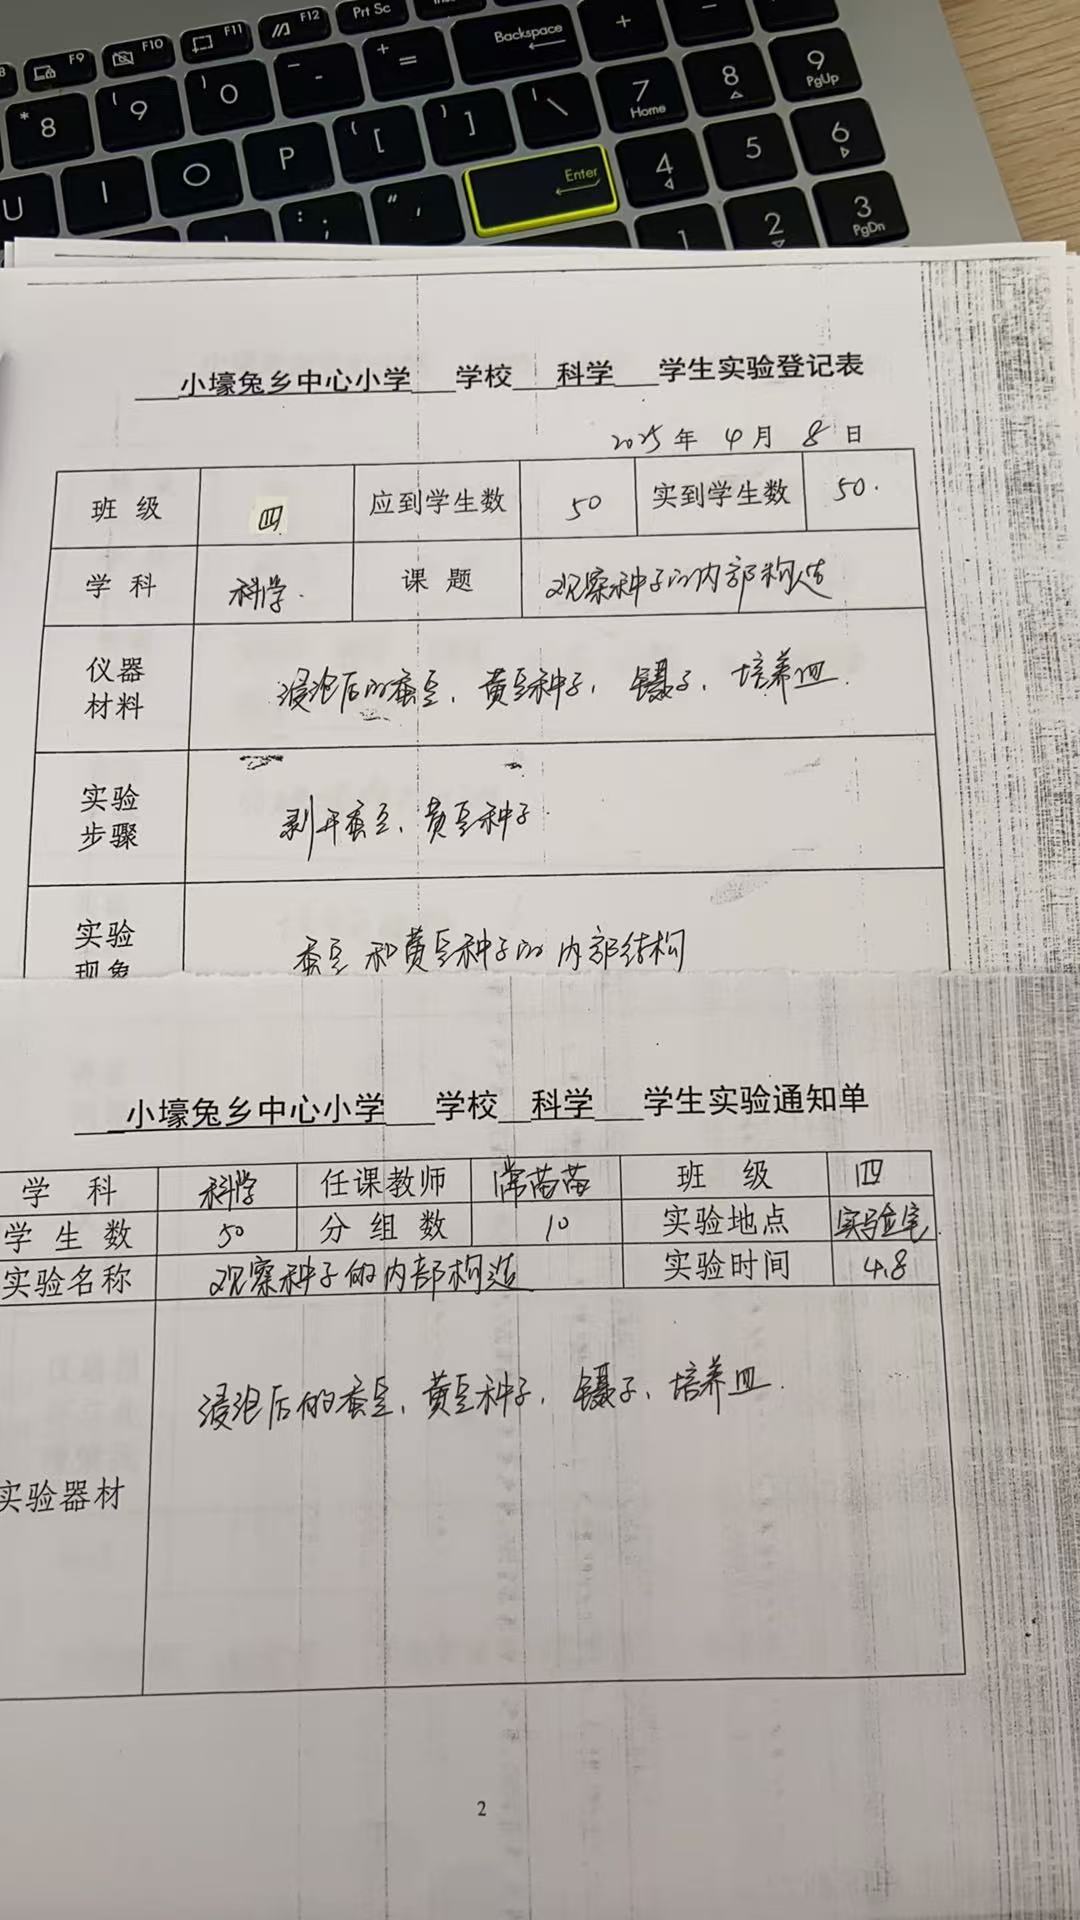 F9 F10 F11 F12 Prt Sc
* 8 ( 9 ) 0 _ - + = Backspace + −
7 Home 8 9 PgUp
U I O P { [ } ] | \ 4 5 6
: ; " ' Enter 1 2 3 PgDn
小壕兔乡中心小学 学校 科学 学生实验登记表
2025 年 4 月 8 日
班级 四 应到学生数 50 实到学生数 50.
学科 科学. 课题 观察种子的内部构造
仪器材料 浸泡后的蚕豆、黄豆种子、镊子、培养皿.
实验步骤 剥开蚕豆、黄豆种子.
实验现象 蚕豆和黄豆种子的内部结构
小壕兔乡中心小学 学校 科学 学生实验通知单
学科 科学 任课教师 常苗苗 班级 四
学生数 50 分组数 10 实验地点 实验室
实验名称 观察种子的内部构造 实验时间 4.8
实验器材 浸泡后的蚕豆、黄豆种子、镊子、培养皿.
2